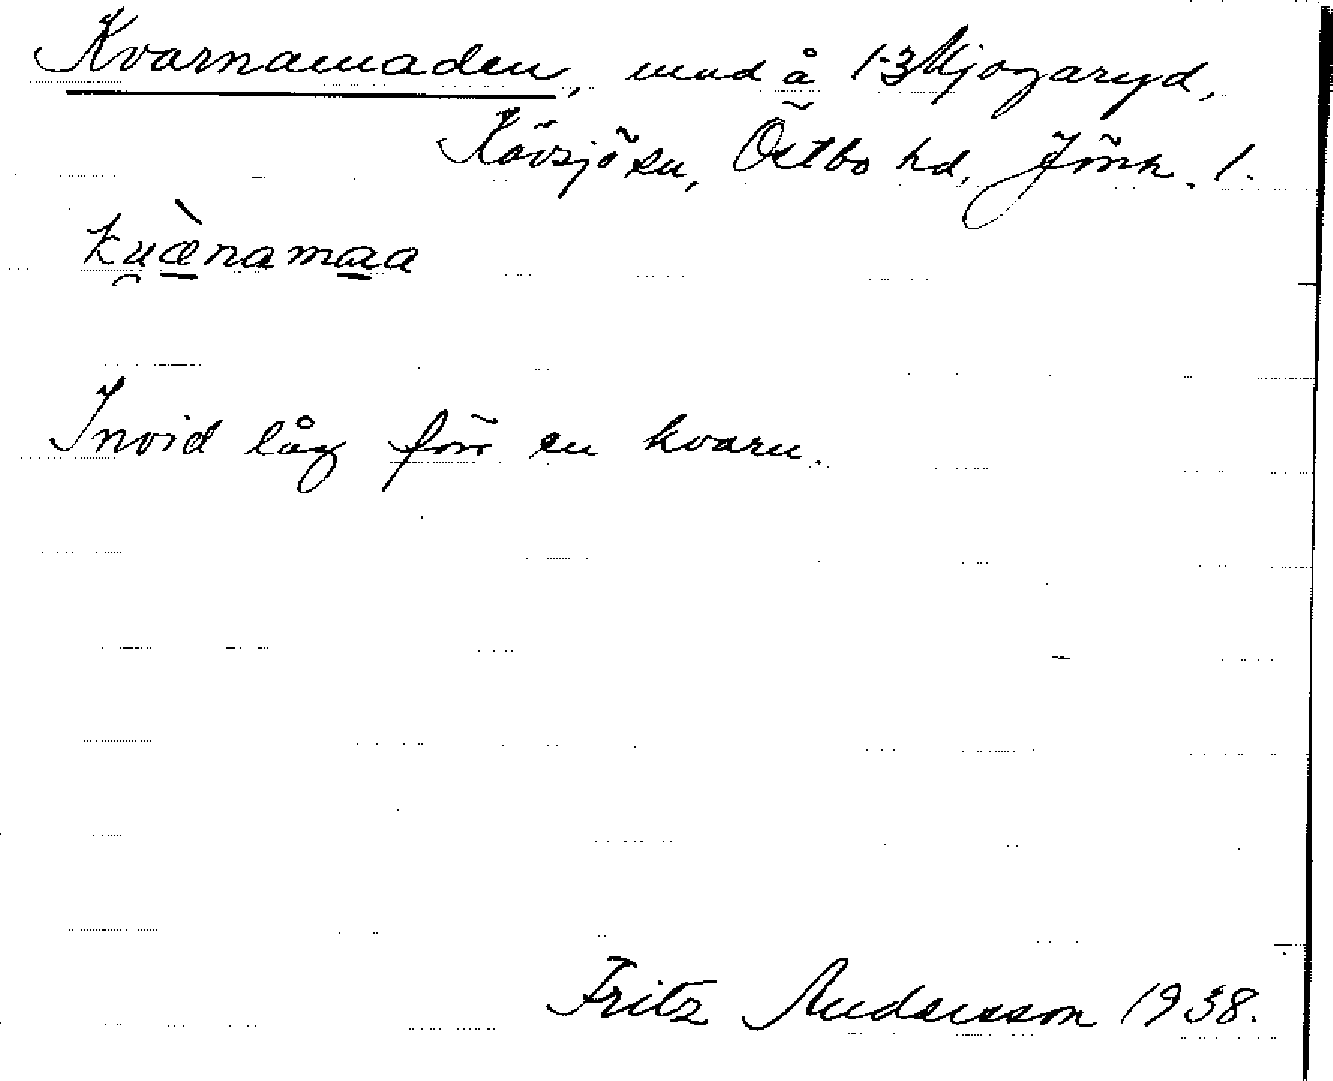 Kvarnamaden, mad å 1-3 Mjogaryd,
Kävsjö sn, Östbo hd, Jönk. l.
ku̯æ̀namaa
Invid låg förr en kvarn.
Fritz Andersson 1938.